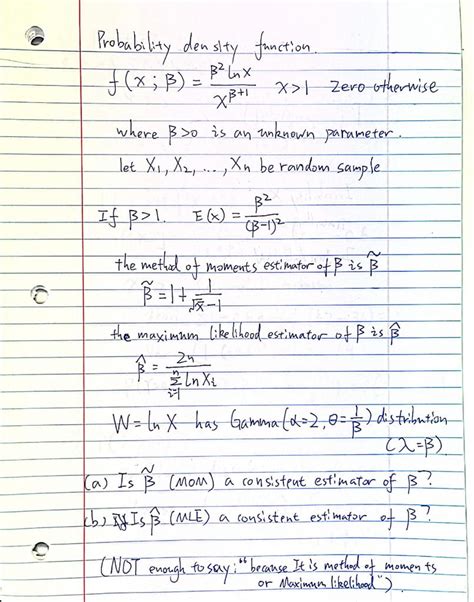 Probability density function.
f(x; β) = β² ln x / x^(β+1)   x>1   Zero otherwise
where β>0 is an unknown parameter.
let X₁, X₂, ..., Xn be random sample
If β>1.   E(x) = β² / (β-1)²
the method of moments estimator of β is β̃
β̃ = 1 + 1 / (√x̄ - 1)
the maximum likelihood estimator of β is β̂
β̂ = 2n / Σ_{i=1}^{n} ln Xi
W = ln X has Gamma(α=2, θ=1/β) distribution
(λ=β)
(a) Is β̃ (MOM) a consistent estimator of β?
(b) Is β̂ (MLE) a consistent estimator of β?
(NOT enough to say: "because It is method of moments
or Maximum likelihood")